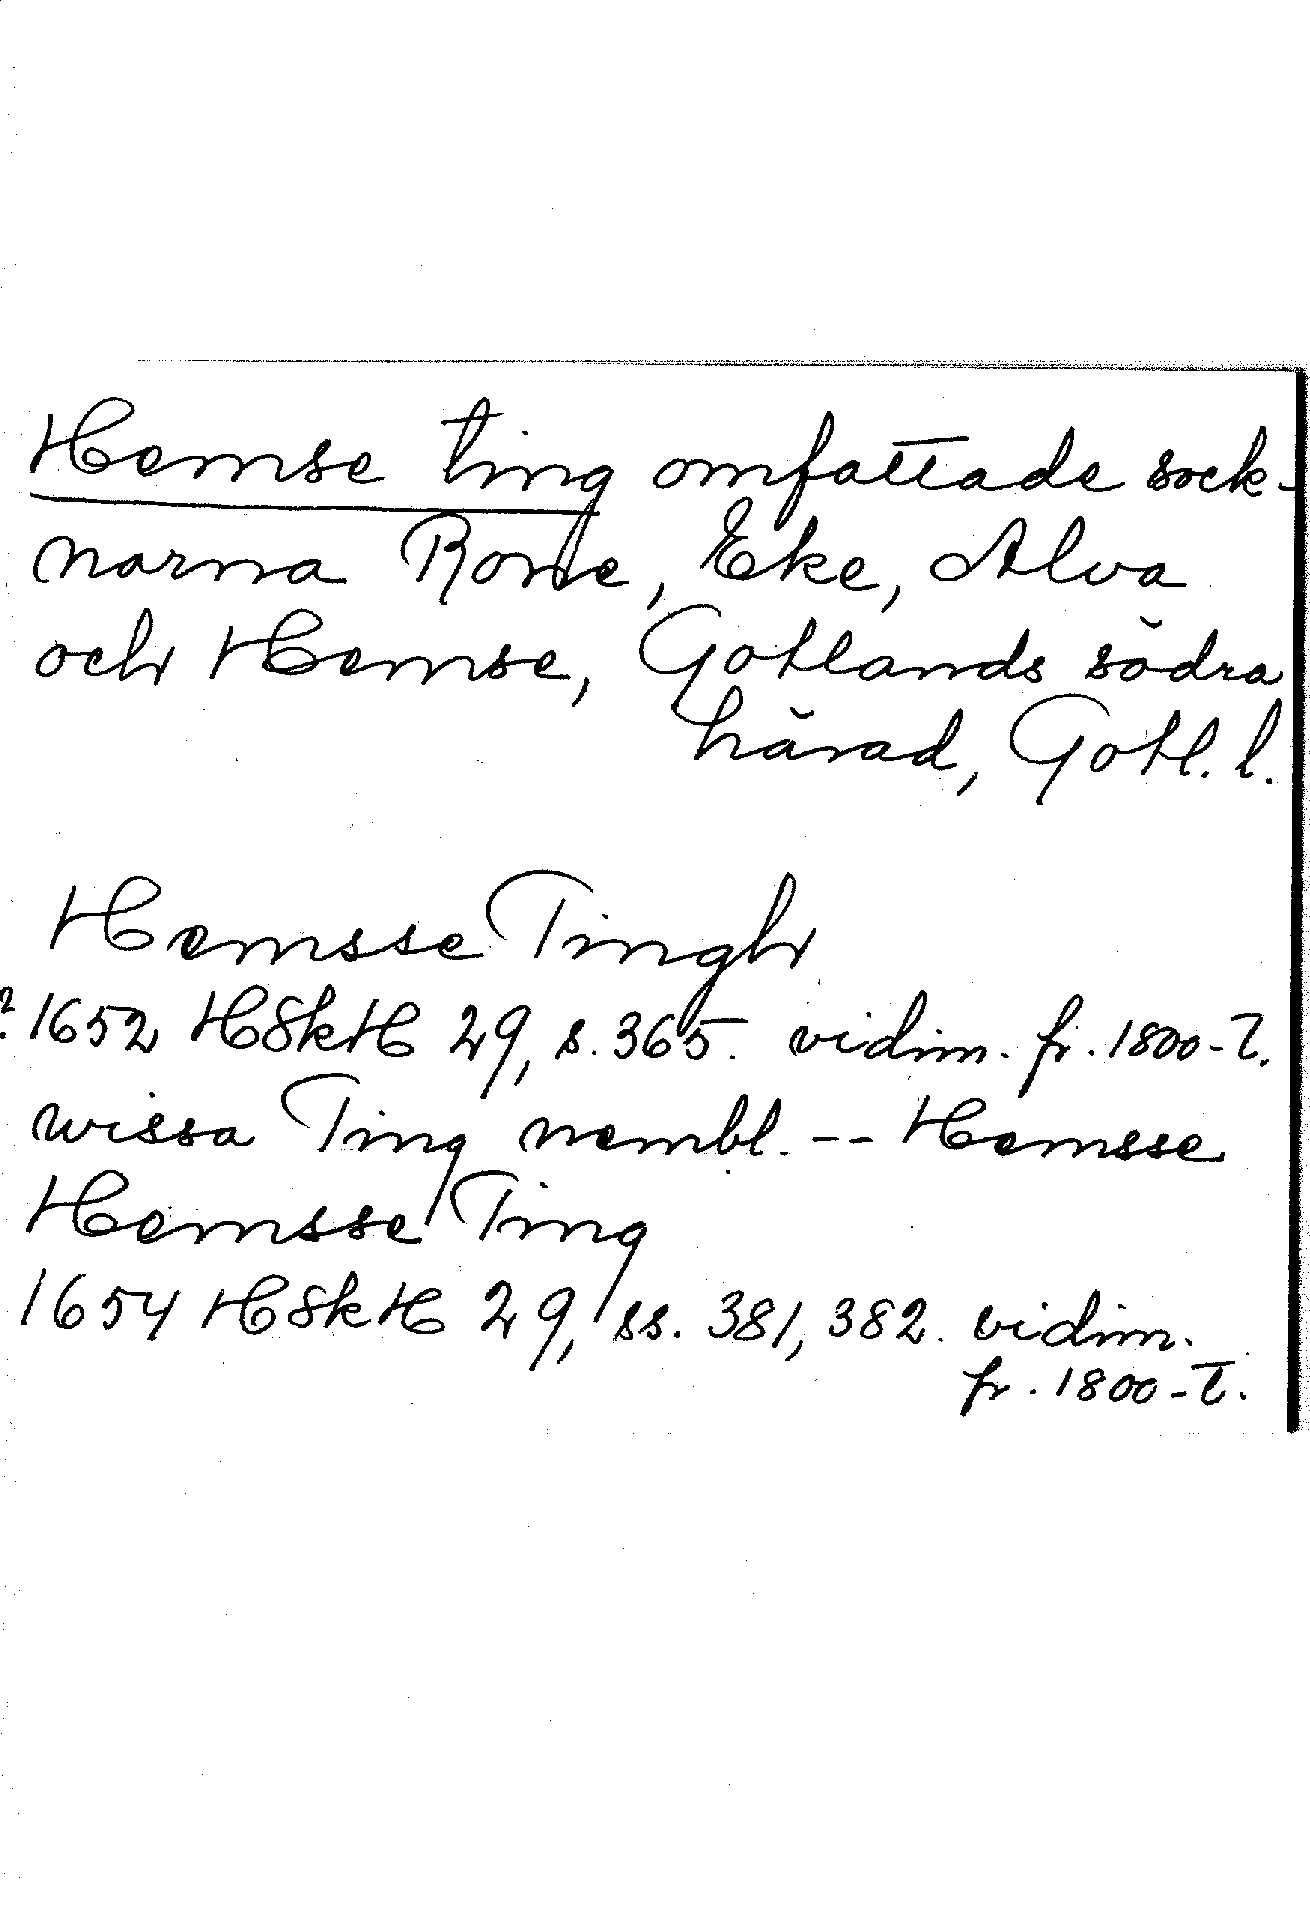 Hemse ting omfattade sock-
narna Rone, Eke, Alva
och Hemse, Gotlands södra
härad, Gotl. l.
Hemsse Tingh
? 1652 HSkH 29, s. 365. vidim. fr. 1800-t.
wissa Ting nembl. -- Hemsse
Hemsse Ting
1654 HSkH 29, ss. 381, 382. vidim.
fr. 1800-t.